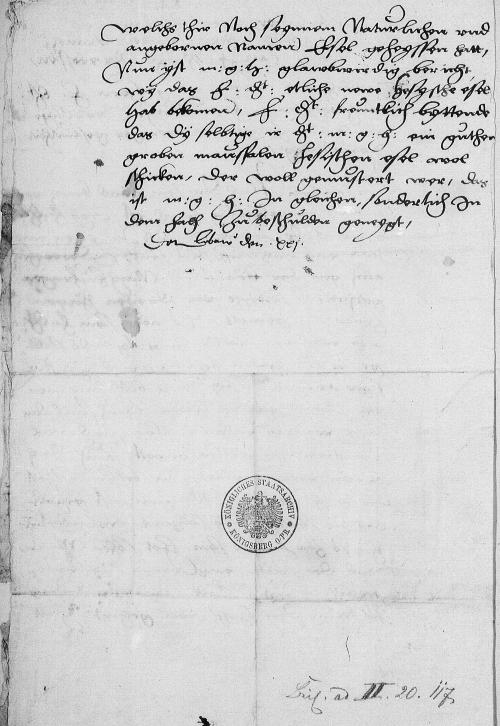 welchs thir Noch seynnem Naturlichen vnd
angebornen Namen Esel geheyssen hatt,
Nun yst m: g: h: glaubwirdig bericht
wy das E: dt: etliche newe hesysche esel
hab bekomen, E: dt: freuntlich byttende
das dy selbige ir dt: m: g: h: ein guthen
groben esel wol
schicken, der woll gemustert wer, das
ist m: g: h: In gleichen, sonderlich In
dem fach Zu beschulden geneygt,
den xxj
KÖNIGLICHES STAATSARCHIV
KÖNIGSBERG O/PR.
ad II. 20. 117